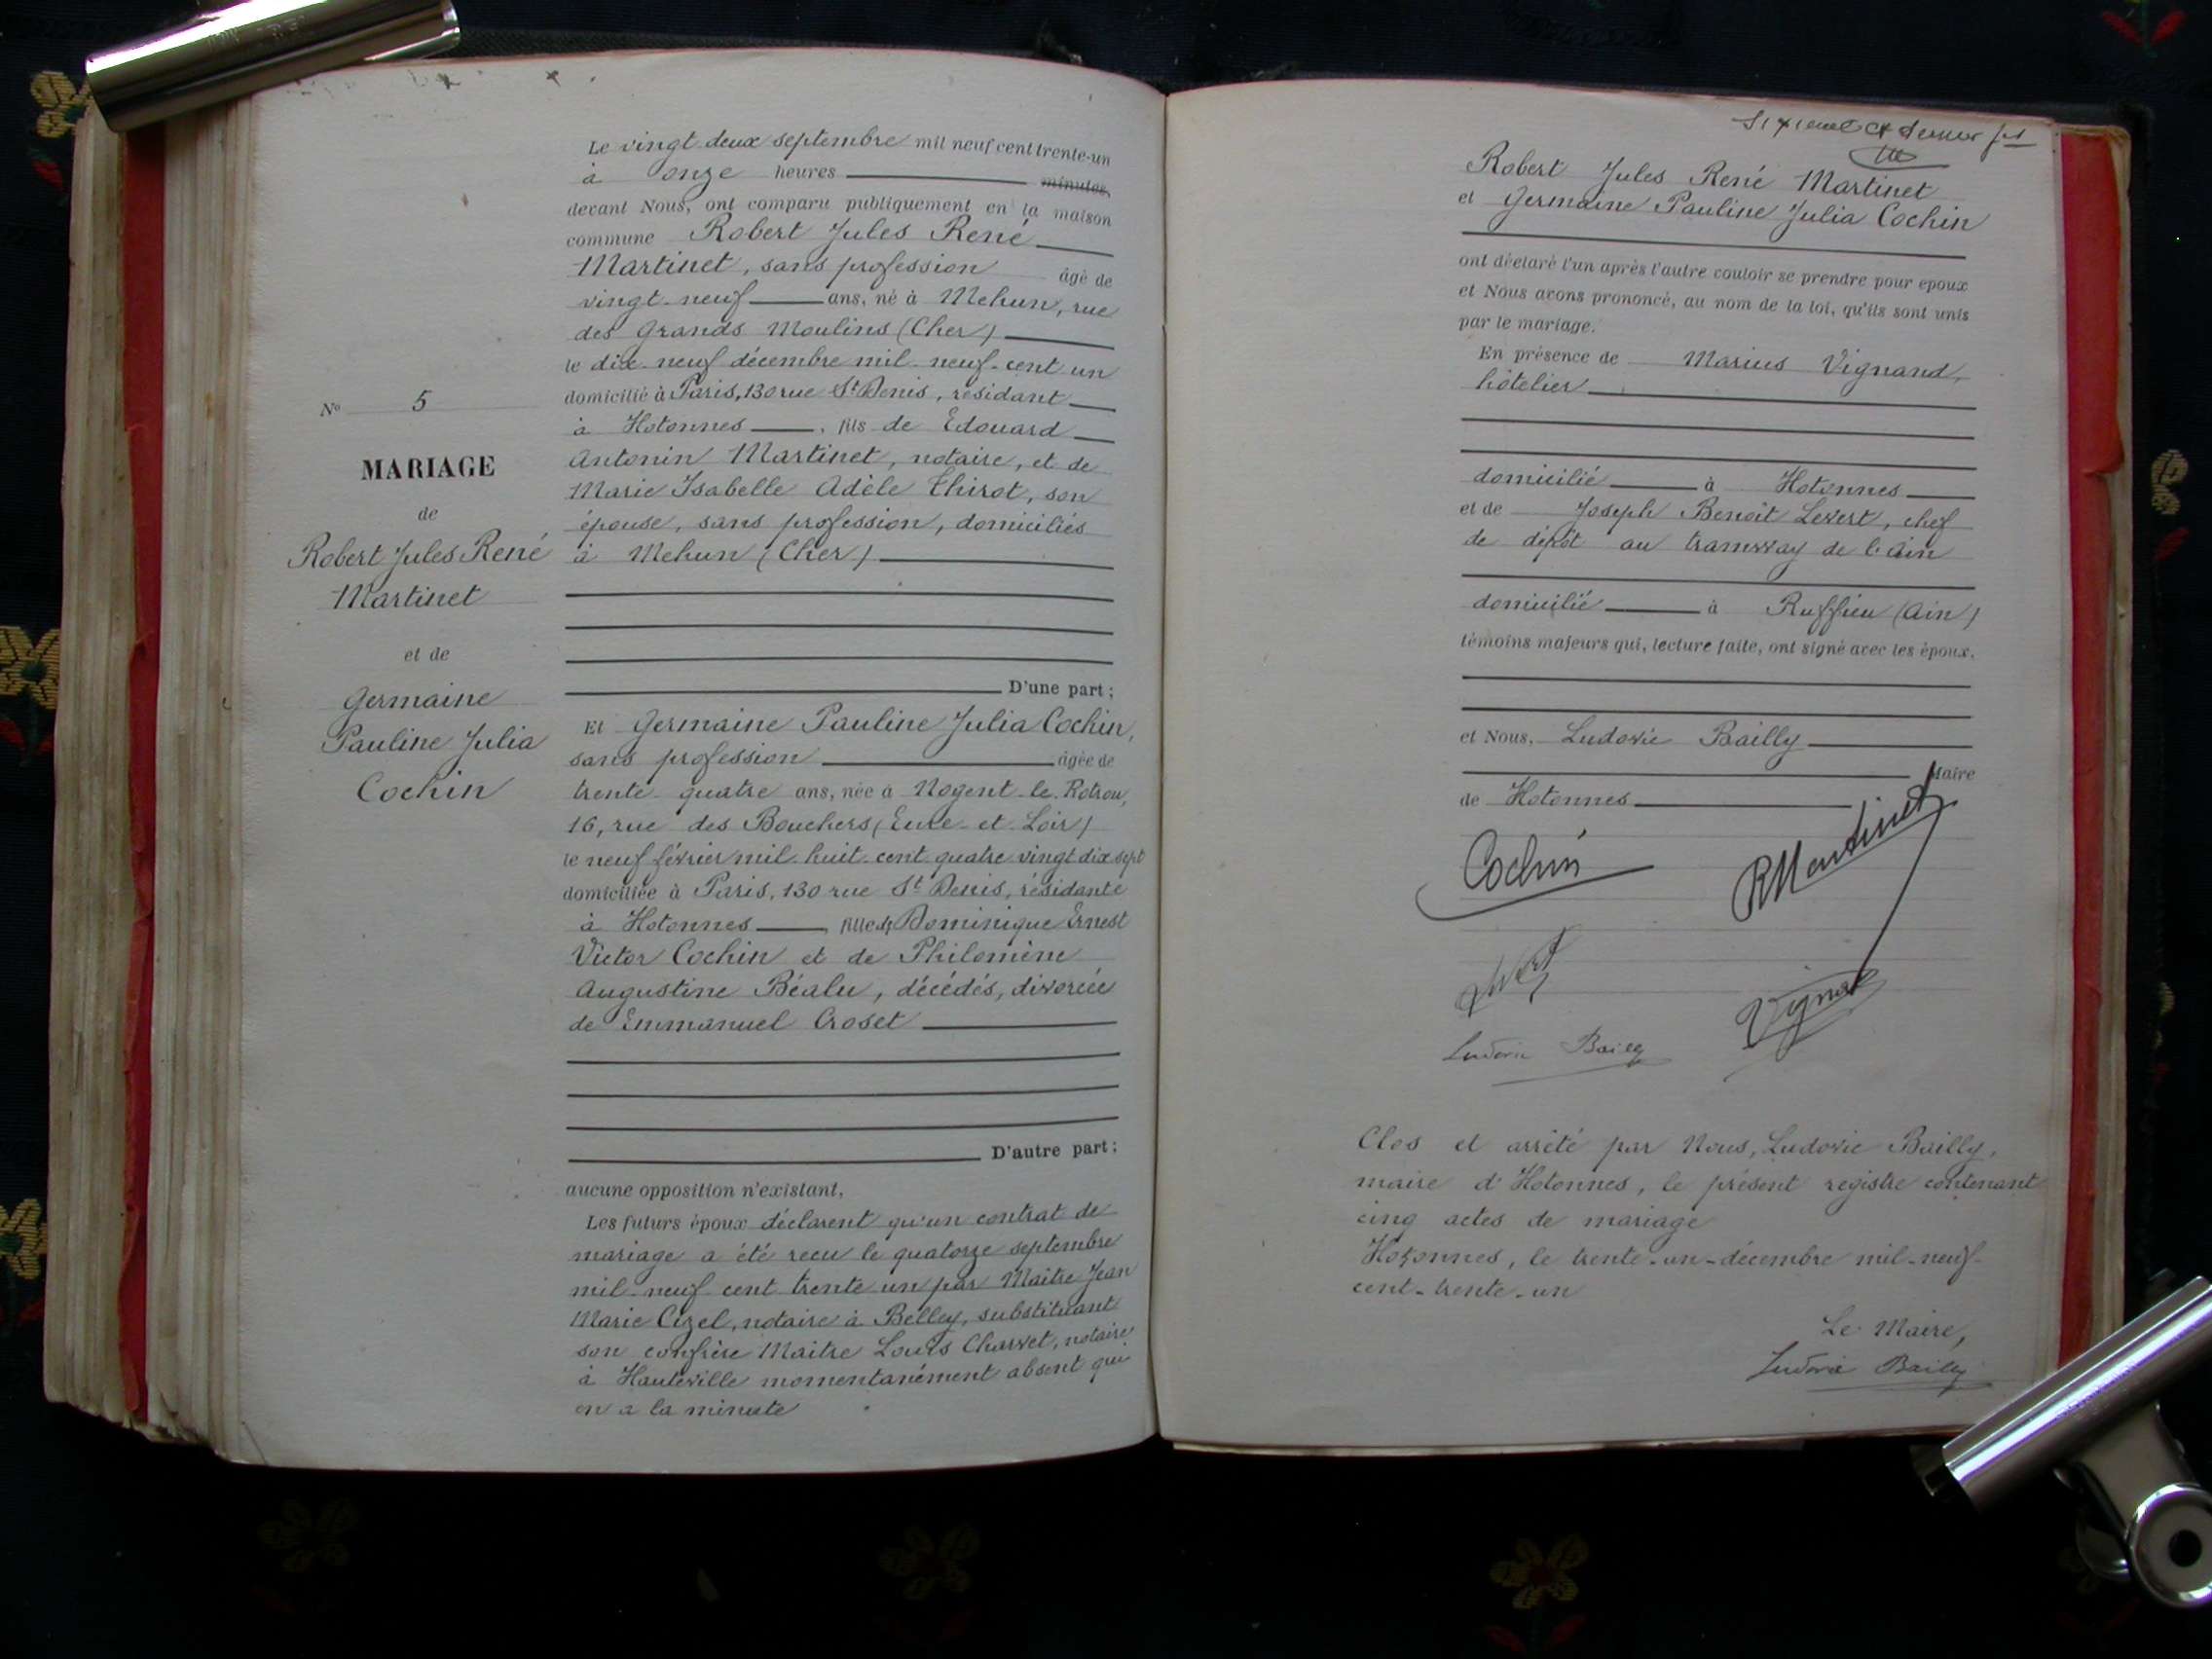 N° 5
MARIAGE
de
Robert Jules René
Martinet
et de
Germaine
Pauline Julia
Cochin
Le vingt-deux septembre mil neuf cent trente-un
à onze heures minutes,
devant Nous, ont comparu publiquement en la maison
commune Robert Jules René
Martinet, sans profession âgé de
vingt-neuf ans, né à Mehun, rue
des Grands Moulins (Cher)
le dix-neuf décembre mil-neuf-cent un
domicilié à Paris, 130 rue St Denis, résidant
à Hotonnes, fils de Edouard
Antonin Martinet, notaire, et de
Marie Isabelle Adèle Thirot, son
épouse, sans profession, domiciliés
à Mehun (Cher)
D'une part;
Et Germaine Pauline Julia Cochin,
sans profession âgée de
trente-quatre ans, née à Nogent-le-Rotrou,
16, rue des Bouchers (Eure-et-Loir)
le neuf février mil-huit-cent-quatre vingt dix sept
domiciliée à Paris, 130 rue St Denis, résidante
à Hotonnes, fille de Dominique Ernest
Victor Cochin et de Philomène
Augustine Béalu, décédés, divorcée
de Emmanuel Croset
D'autre part;
aucune opposition n'existant,
Les futurs époux déclarent qu'un contrat de
mariage a été recu le quatorze septembre
mil-neuf cent trente un par Maître Jean
Marie Cizel, notaire à Belley, substituant
son confrère Maître Louis Charvet, notaire
à Hauteville momentanément absent qui
en a la minute
Sixième et dernier
Robert Jules René Martinet
et Germaine Pauline Julia Cochin
ont déclaré l'un après l'autre vouloir se prendre pour époux
et Nous avons prononcé, au nom de la loi, qu'ils sont unis
par le mariage.
En présence de Marius Vignand,
hôtelier
domicilié à Hotonnes
et de Joseph Benoît Levert, chef
de dépôt au tramway de l'Ain
domicilié à Ruffieu (Ain)
témoins majeurs qui, lecture faite, ont signé avec les époux,
et Nous, Ludovic Bailly
Maire
de Hotonnes
Cochin
RMartinet
Ludovic Bailly
Clos et arrêté par Nous, Ludovic Bailly,
maire d'Hotonnes, le présent registre contenant
cinq actes de mariage
Hotonnes, le trente-un-décembre mil-neuf-
cent-trente-un
Le Maire,
Ludovic Bailly